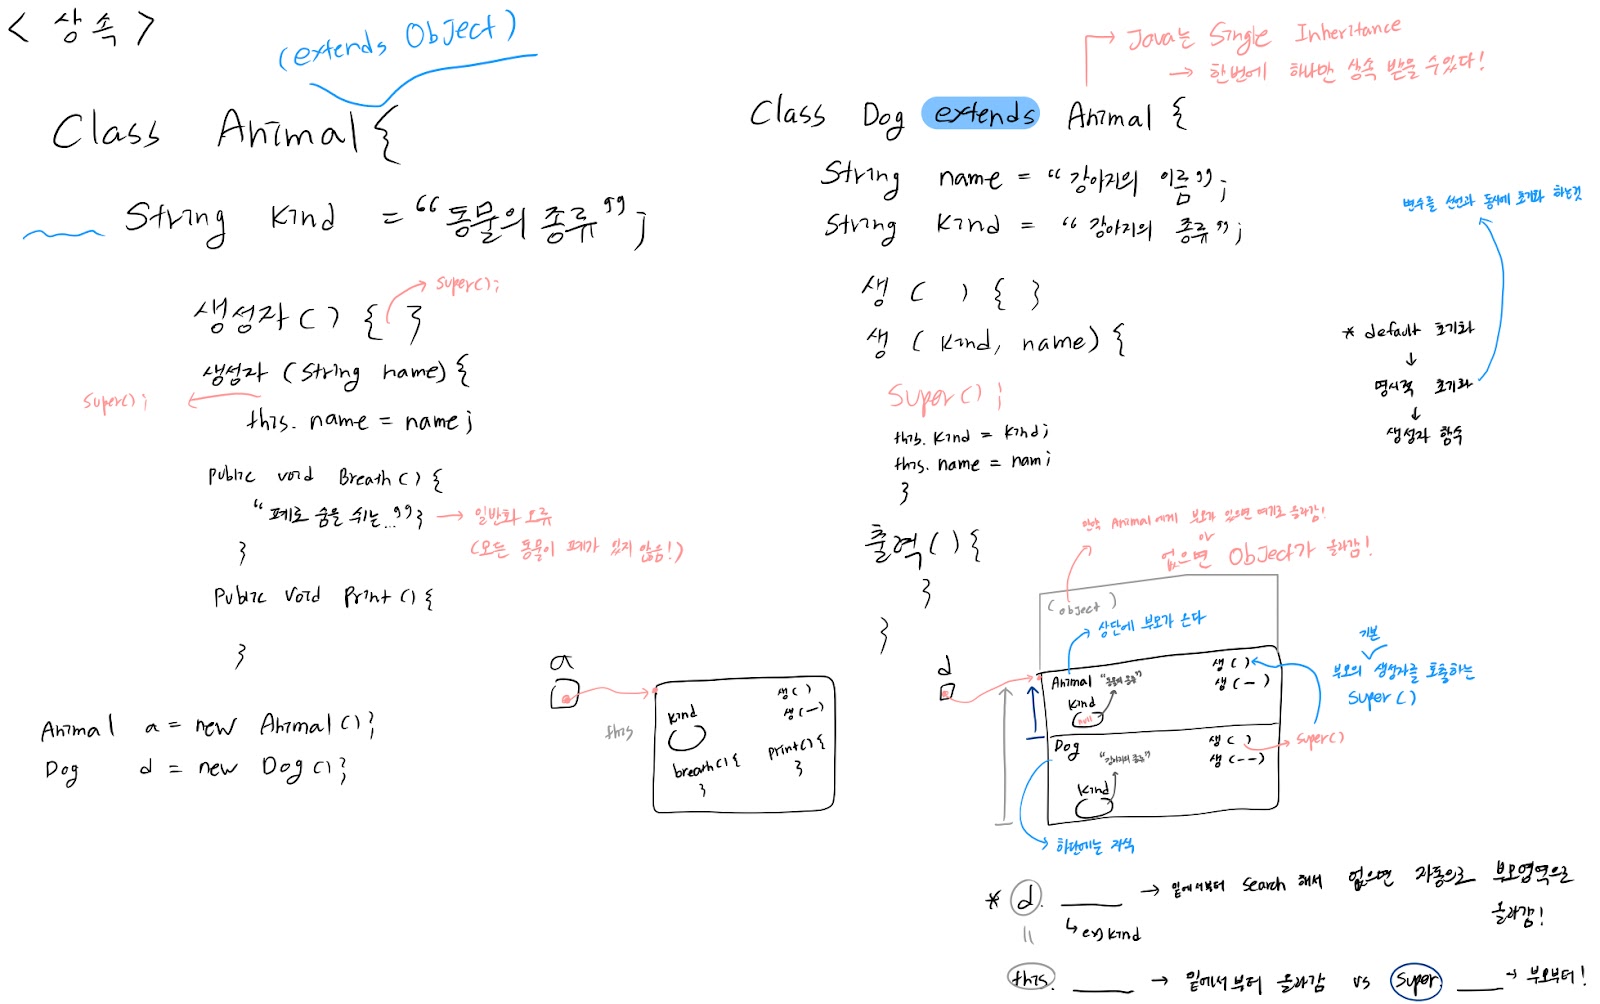 < 상속 >
(extends Object)
Class Animal {
String kind = “동물의 종류”;
생성자() { }
Super();
생성자 (String name) {
Super();
this. name = name;
Public void Breath() {
“폐로 숨을 쉬는...”;
→ 일반화 오류
(모든 동물이 폐가 있지 않음!)
}
Public void Print() {
}
Animal a = new Animal();
Dog d = new Dog();
a
this
kind
생( )
생(—)
breath() {
}
print() {
}
→ Java는 Single Inheritance
→ 한번에 하나만 상속 받을 수 있다!
Class Dog extends Animal {
String name = “강아지의 이름”;
String kind = “강아지의 종류”;
생 ( ) { }
생 (kind, name) {
Super();
this. kind = kind;
this. name = nam;
}
출력() {
}
}
변수를 선언과 동시에 초기화 하는것
* default 초기화
↓
명시적 초기화
↓
생성자 함수
만약 Animal에게 부모가 있으면 여기로 올라감!
or
없으면 Object가 올라감!
(object)
상단에 부모가 온다
d
Animal
“동물의 종류”
생( )
생(—)
kind
null
기본
부모의 생성자를 호출하는
Super()
Dog
“강아지의 종류”
생( )
생(--)
Super()
kind
하단에는 자식
* d. ____ → 밑에서부터 Search 해서 없으면 자동으로 부모영역으로
올라감!
↳ ex) kind
=
this. ____ → 밑에서부터 올라감 vs Super. ____ → 부모부터!